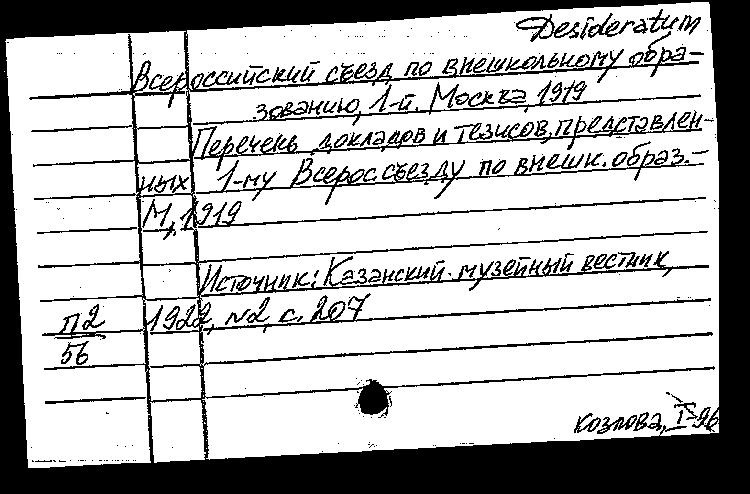 Desideratum
Всероссийский съезд по внешкольному обра-
зованию, 1-й. Москва, 1919
Перечень докладов и тезисов, представлен-
ных 1-му Всерос. съезду по внешк. образ. -
М., 1919
Источник: Казанский музейный вестник,
1922, №2, с. 207
П2
56
Козлова, I-96